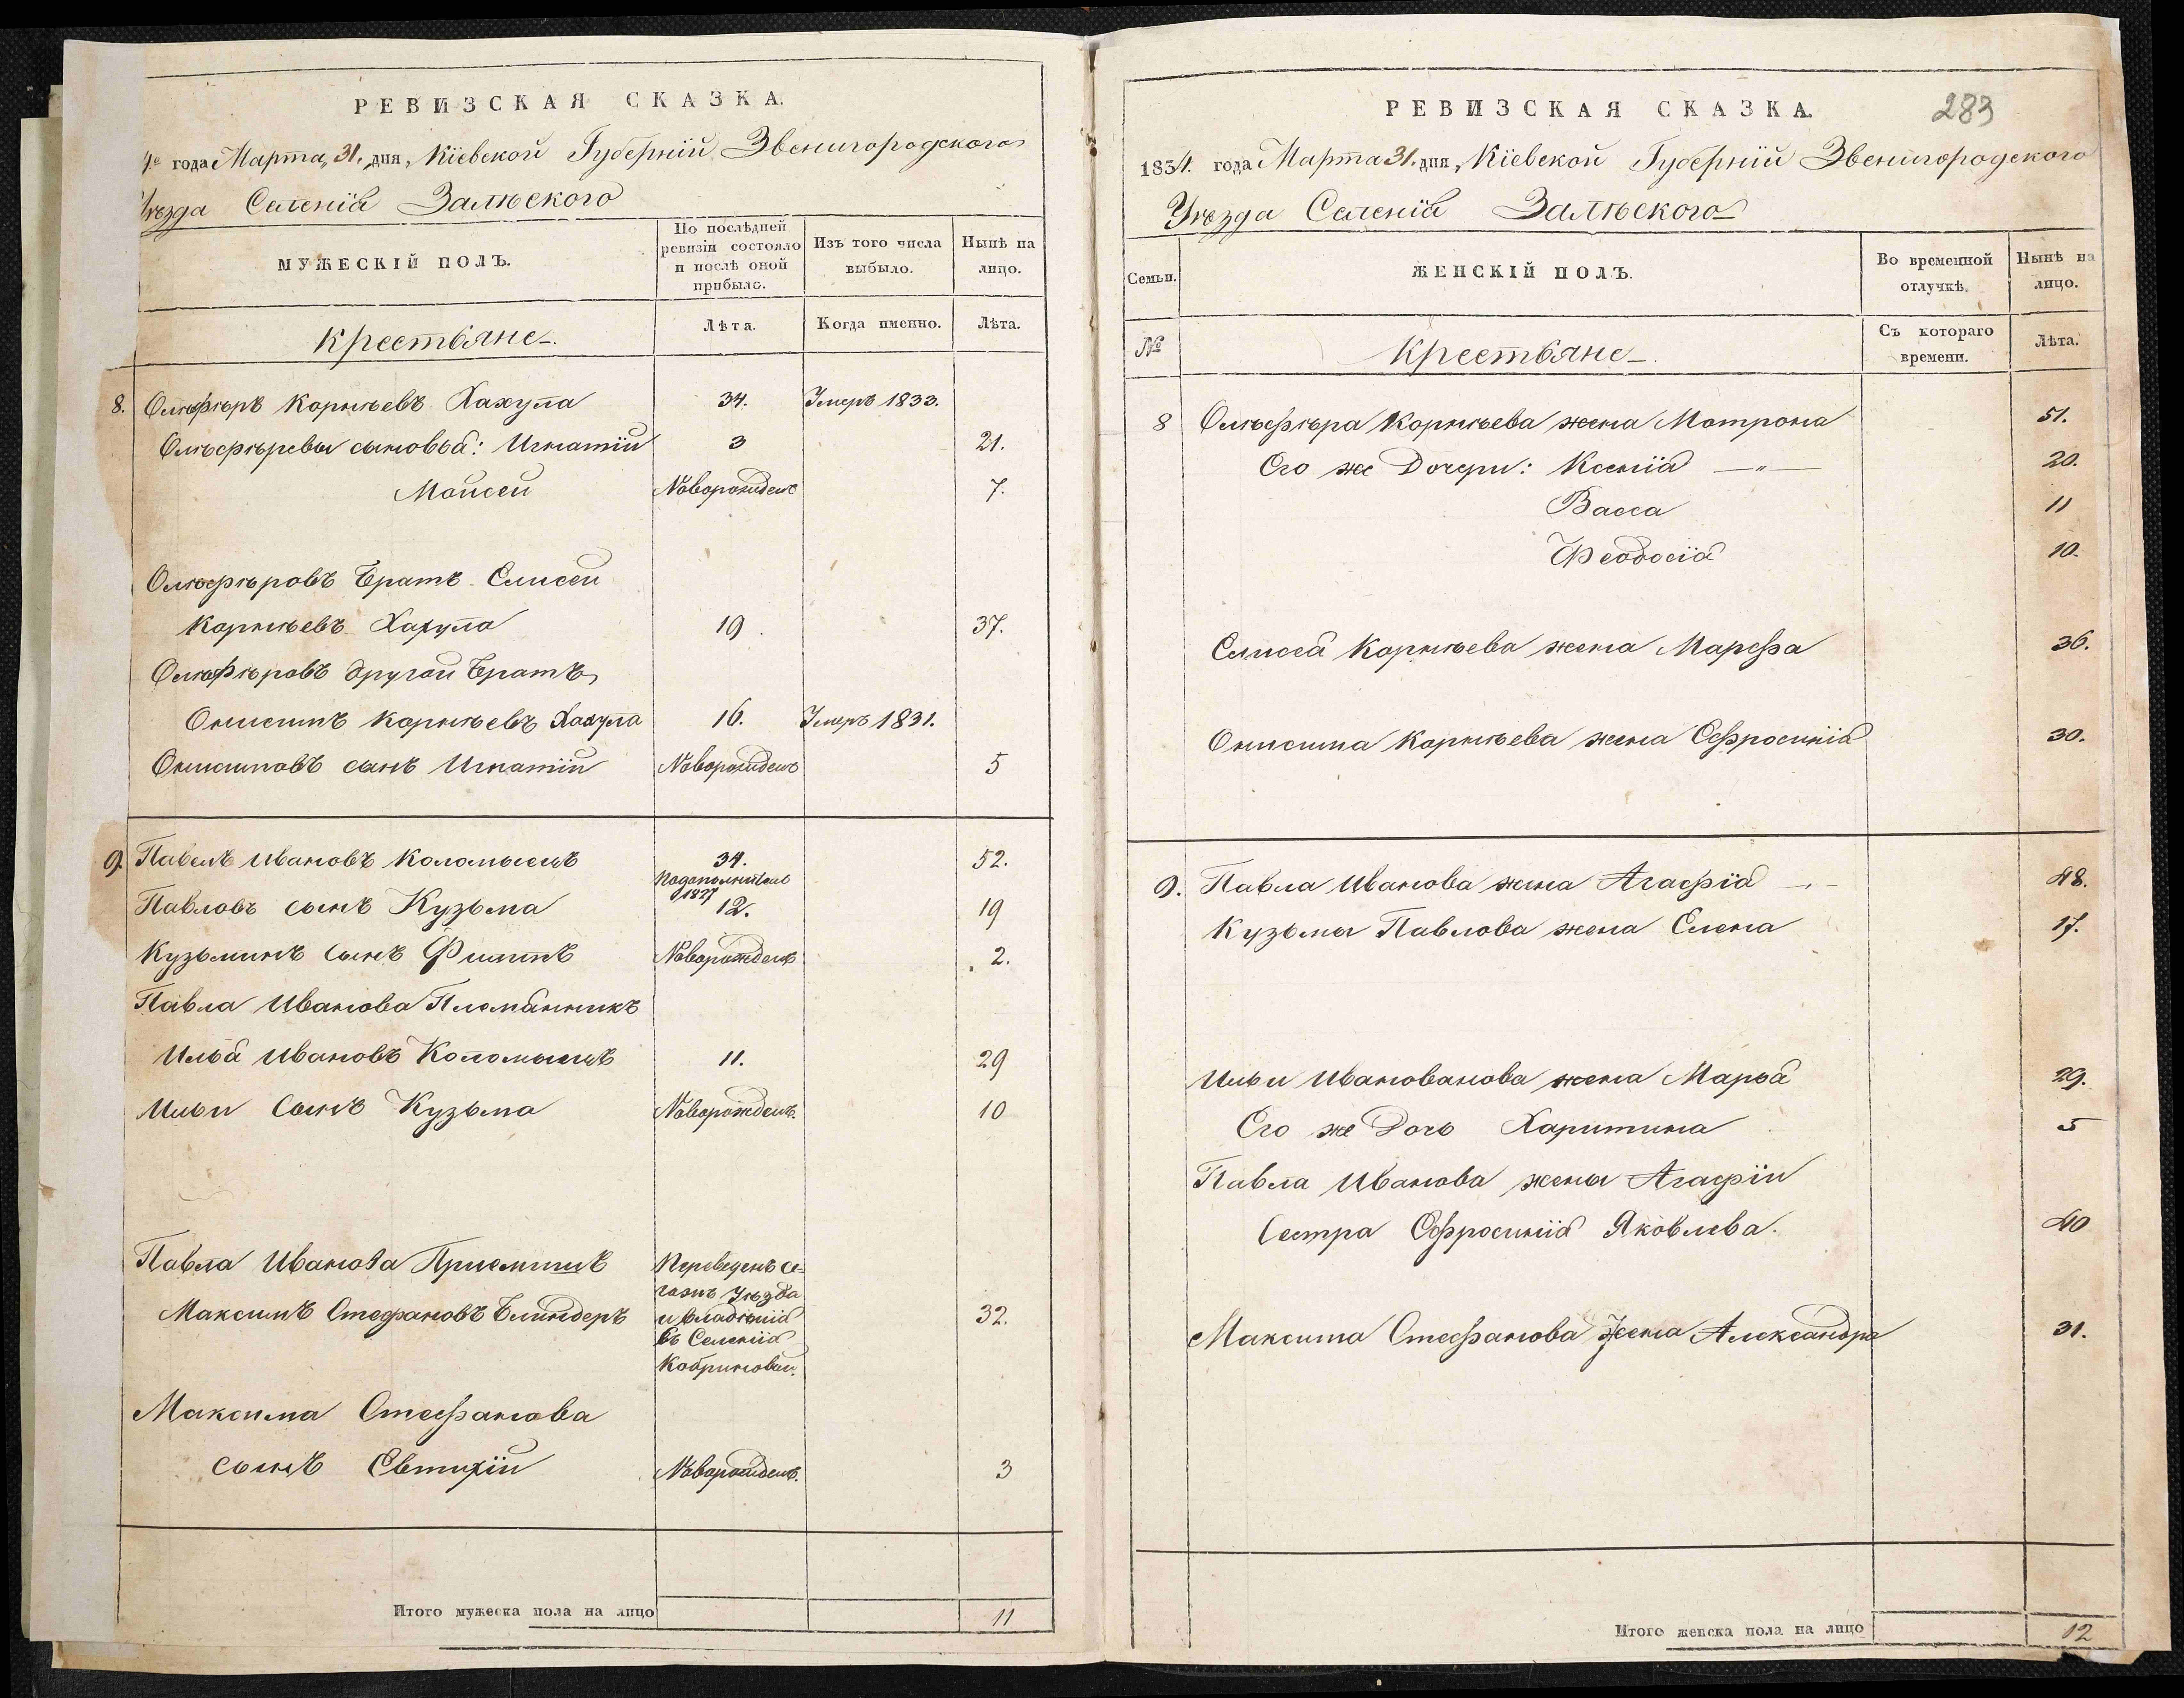 РЕВИЗСКАЯ СКАЗКА.
4го года Марта, 31. дня, Кіевской Губерніи Звенигородского
Уѣзда Селенія Залѣского
МУЖЕСКІЙ ПОЛЪ.
По послѣдней ревизіи состояло и послѣ оной прибыло.
Изъ того числа выбыло.
Нынѣ на лицо.
Крестьяне.
Лѣта.
Когда именно.
Лѣта.
8. Олѣфѣръ Корнѣевъ Хахула 34. Умеръ 1833.
Олѣфѣревы сыновья: Игнатій 3 21.
Мойсей Новорожденъ 7.
Олѣфѣровъ братъ Елисей
Корнѣевъ Хахула 19. 37.
Олѣфѣровъ другой братъ
Онисимъ Корнѣевъ Хахула 16. Умеръ 1831.
Онисимовъ сынъ Игнатій Новорожденъ 5
9. Павелъ Ивановъ Коломыецъ 34. 52.
Подополнител
1827
Павловъ сынъ Кузьма 12. 19
Кузьминъ сынъ Филипъ Новорожденъ 2.
Павла Иванова Племянникъ
Илья Ивановъ Коломыецъ 11. 29
Ильи Сынъ Кузьма Новорожденъ. 10
Павла Иванова Приемышъ Переведенъ се-
гожъ Уѣзда
Максимъ Стефановъ Блиндеръ и владѣнія 32.
съ Селенія
Кобриновой.
Максима Стефанова
сынъ Евтихій Новорожденъ. 3
Итого мужеска пола на лицо 11
РЕВИЗСКАЯ СКАЗКА. 283
1834. года Марта 31. дня, Кіевской Губерніи Звенигородского
Уѣзда Селенія Залѣского
Семьи.
ЖЕНСКІЙ ПОЛЪ.
Во временной отлучкѣ.
Нынѣ на лицо.
№
Крестьяне.
Съ котораго времени.
Лѣта.
8 Олѣфѣра Корнѣева жена Мотрона 51.
Его же Дочери: Ксенія —„— 20.
Васса 11
Феодосія 10.
Елисея Корнѣева жена Марфа 36.
Онисима Корнѣева жена Ефросинія 30.
9. Павла Иванова жена Агафія 48.
Кузьмы Павлова жена Елена 17.
Ильи Ивановано­ва жена Марья 29.
Его же Дочь Харитина 5
Павла Иванова жены Агафіи
Сестра Ефросинія Яковлева. 40
Максима Стефанова Жена Александра 31.
Итого женска пола на лицо 12